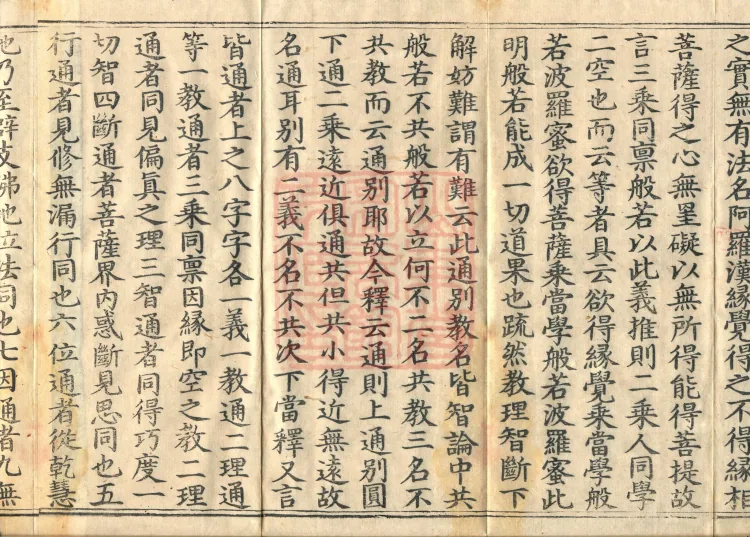 之實無有法名阿羅漢縁覺得之不得縁相
菩薩得之心無罣礙以無所得能得菩提故
言三乘同禀般若以此義推則二乘人同學
二空也而云等者具云欲得縁覺乘當學般
若波羅蜜欲得菩薩乘當學般若波羅蜜此
明般若能成一切道果也䟽然教理智斷下
解妨難謂有難云此通別教名皆智論中共
般若不共般若以立何不二名共教三名不
共教而云通別耶故今釋云通則上通別圓
下通二乘遠近俱通共但共小得近無遠故
名通耳別有二義不名不共次下當釋又言
皆通者上之八字字各一義一教通二理通
等一教通者三乘同禀因縁即空之教二理
通者同見偏眞之理三智通者同得巧度一
切智四斷通者菩薩界内惑斷見思同也五
行通者見修無漏行同也六位通者從乾慧
地乃至辟支佛地立法同也七因通者九無